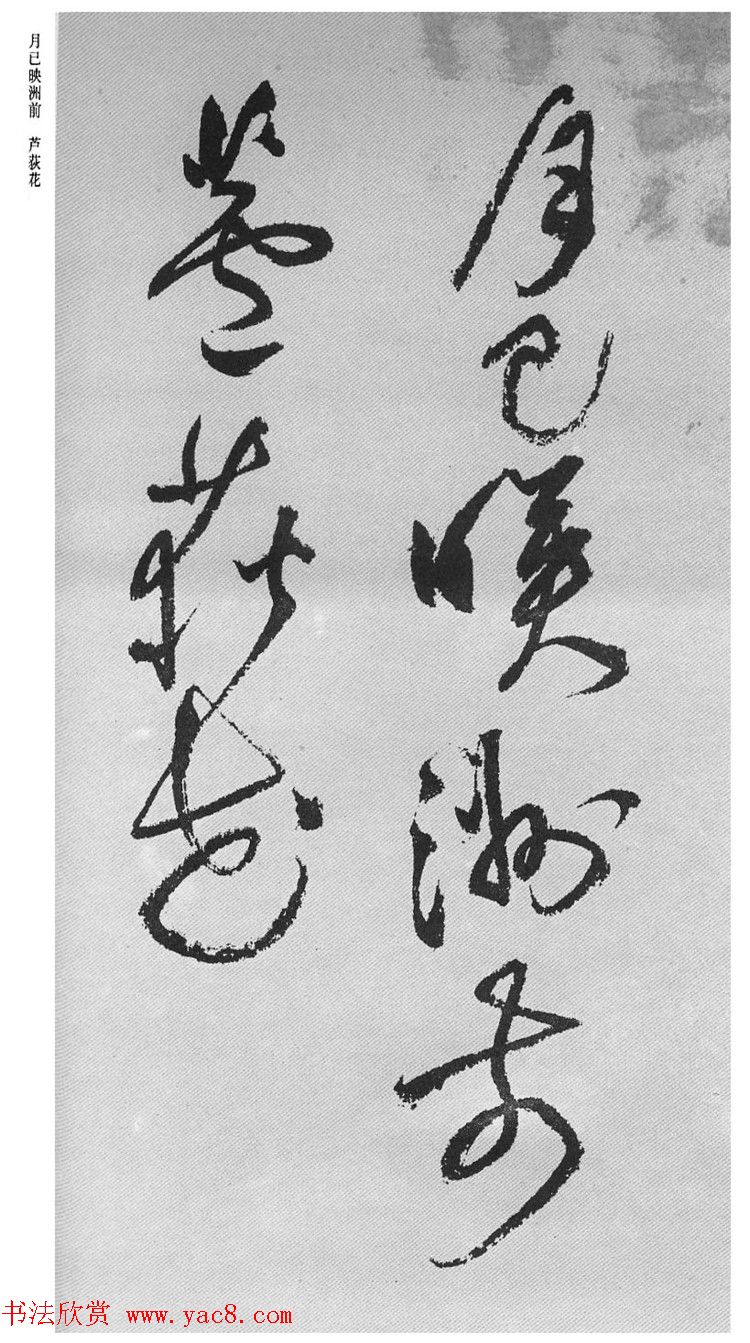 月已映洲前
蘆荻花
月已映洲前 芦荻花
书法欣赏 www.yac8.com